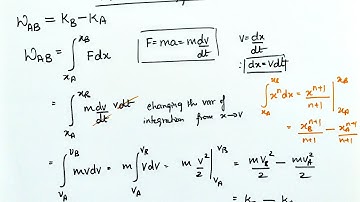 W_AB = K_B - K_A
W_AB = ∫_{x_A}^{x_B} F dx
F = ma = m dv/dt
v = dx/dt
∴ dx = v dt
= ∫_{x_A}^{x_B} m dv/dt v dt
changing the var of
integration from x → v
∫_{x_A}^{x_B} x^n dx = x^{n+1}/(n+1) |_{x_A}^{x_B}
= x_B^{n+1}/(n+1) - x_A^{n+1}/(n+1)
= ∫_{v_A}^{v_B} m v dv = m ∫_{v_A}^{v_B} v dv = m v^2/2 |_{v_A}^{v_B} = m v_B^2/2 - m v_A^2/2
= K_B - K_A